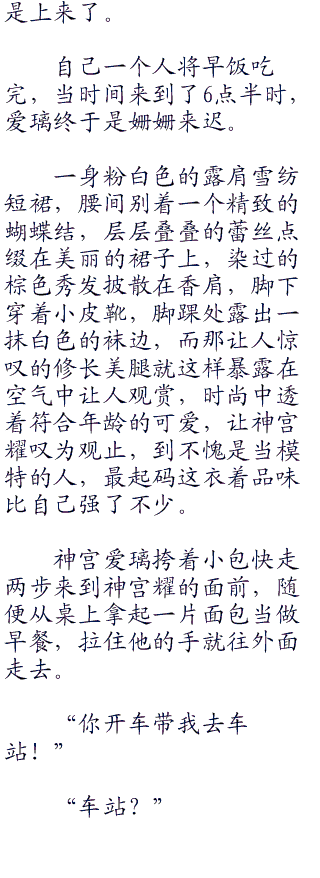 是上来了。
自己一个人将早饭吃
完，当时间来到了6点半时，
爱璃终于是姗姗来迟。
一身粉白色的露肩雪纺
短裙，腰间别着一个精致的
蝴蝶结，层层叠叠的蕾丝点
缀在美丽的裙子上，染过的
棕色秀发披散在香肩，脚下
穿着小皮靴，脚踝处露出一
抹白色的袜边，而那让人惊
叹的修长美腿就这样暴露在
空气中让人观赏，时尚中透
着符合年龄的可爱，让神宫
耀叹为观止，到不愧是当模
特的人，最起码这衣着品味
比自己强了不少。
神宫爱璃挎着小包快走
两步来到神宫耀的面前，随
便从桌上拿起一片面包当做
早餐，拉住他的手就往外面
走去。
“你开车带我去车
站！”
“车站？”